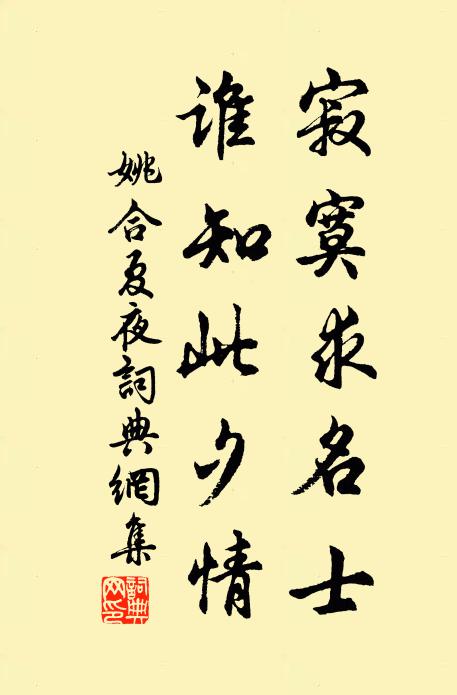 寂寞求名士
谁知此夕情
姚合夏夜詞典網集
詞典网印